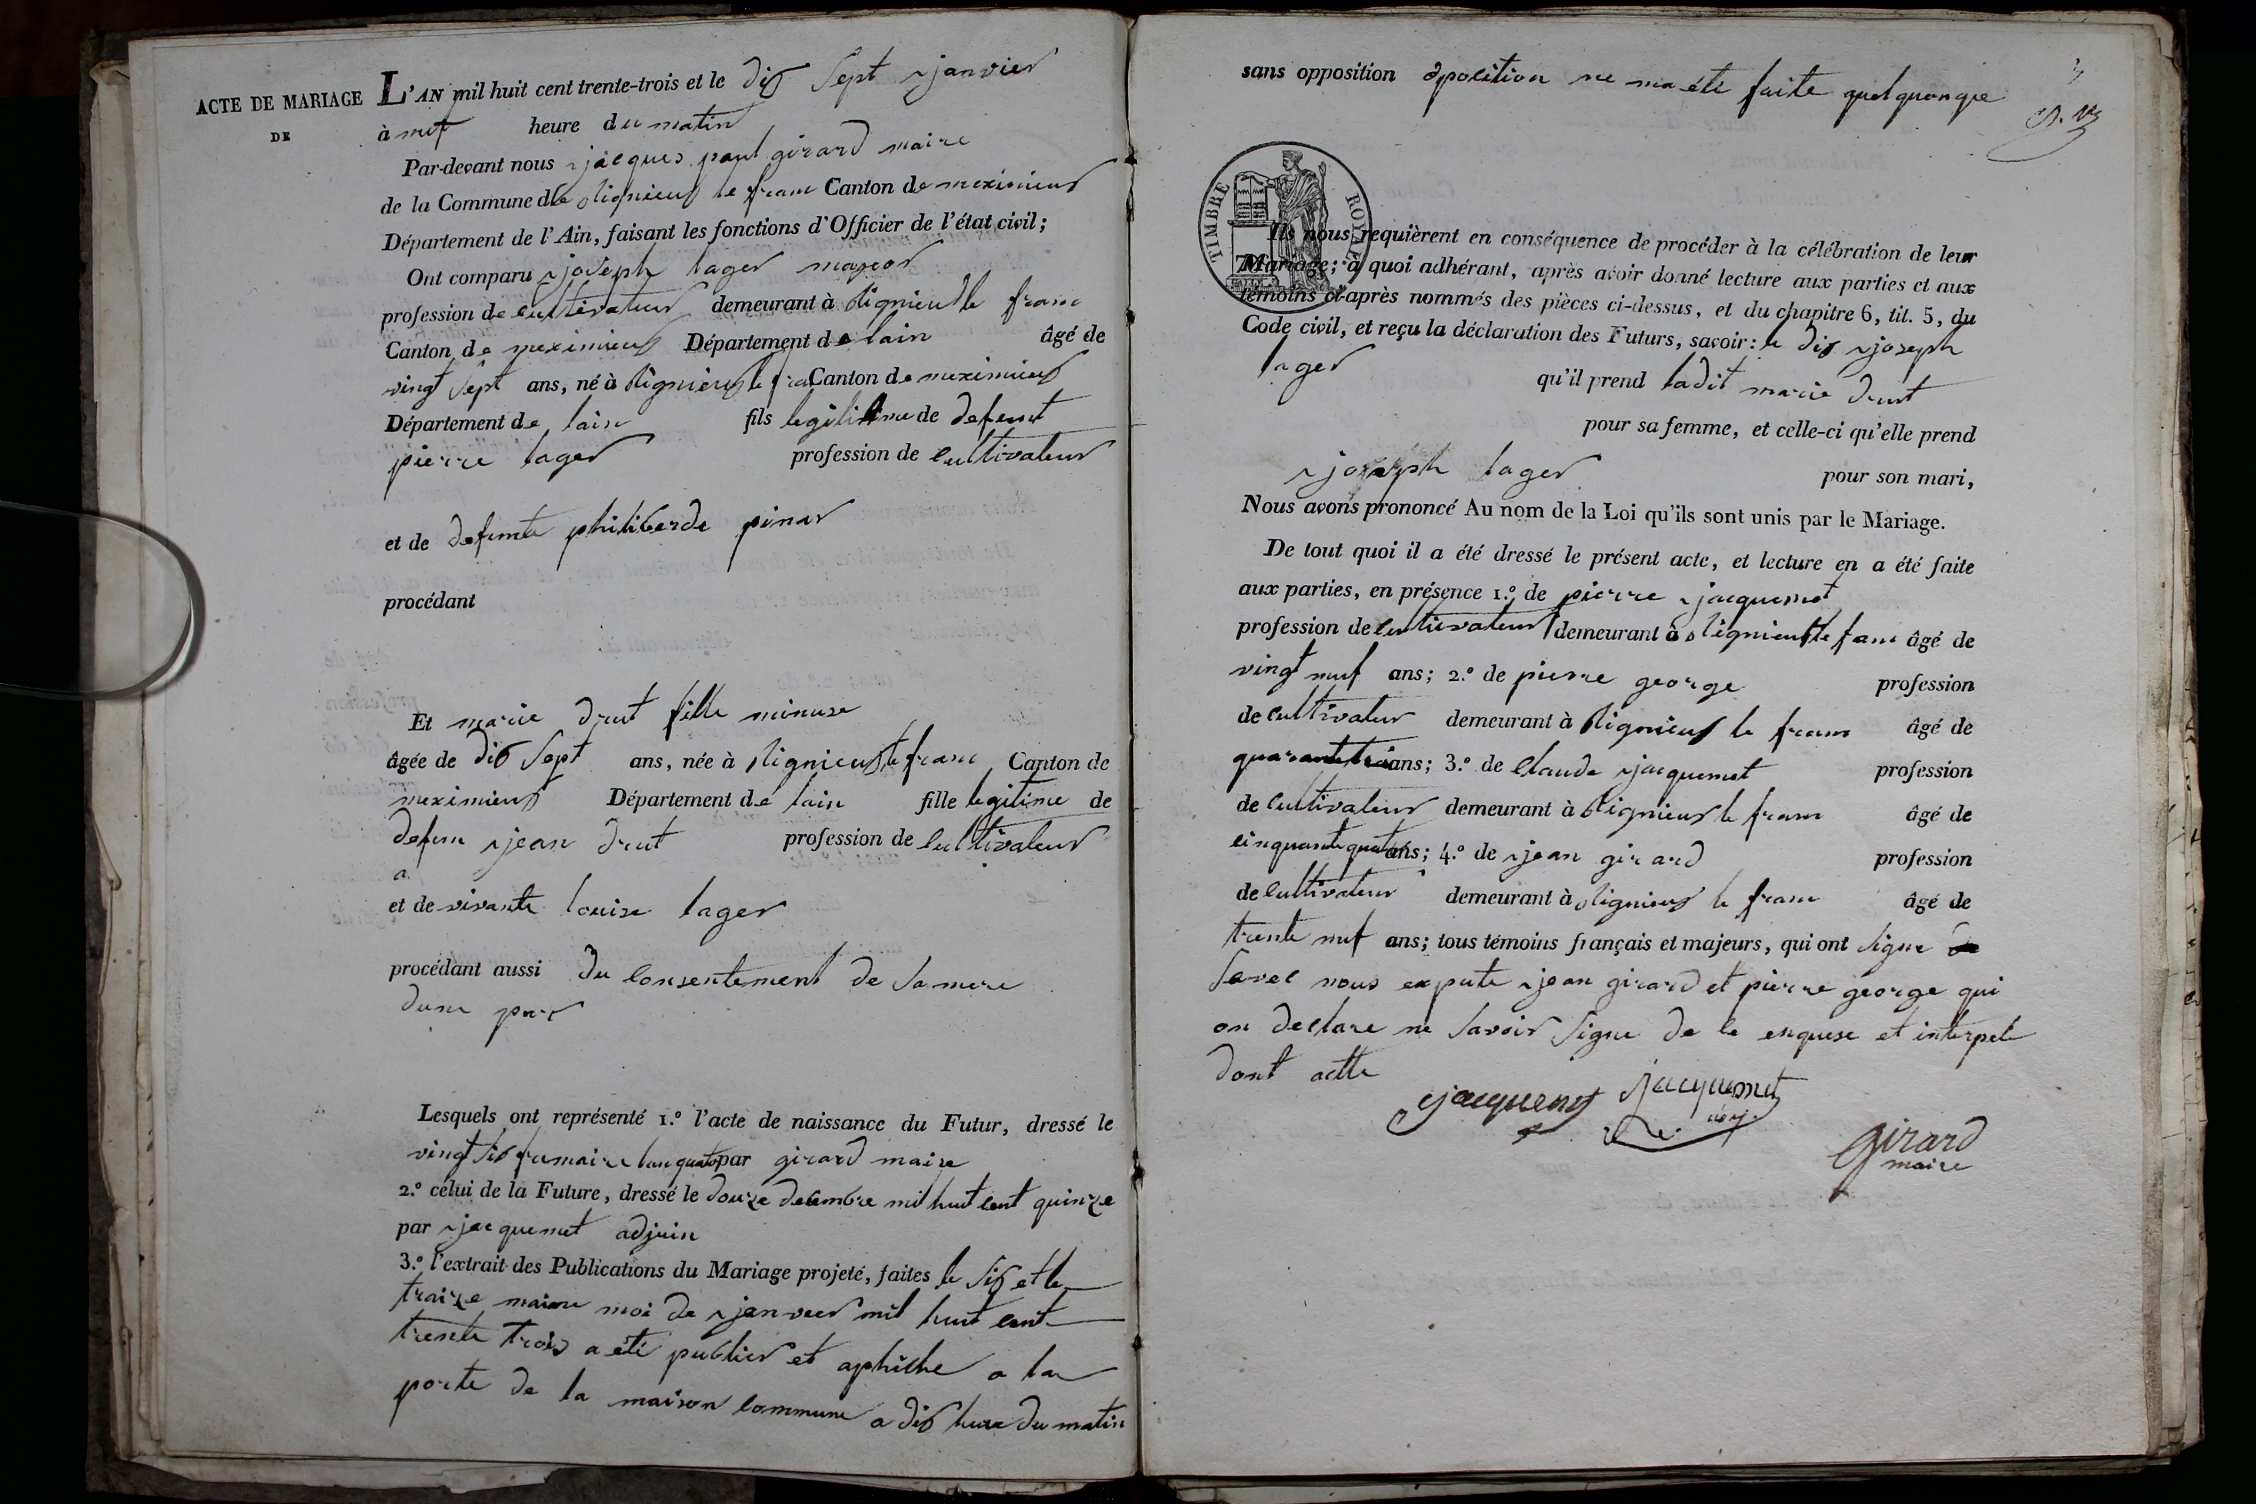 ACTE DE MARIAGE
DE
L'AN mil huit cent trente-trois et le dix sept janvier
à neuf heure du matin
Par-devant nous jacques paul girard maire
de la Commune de rignieux le franc Canton de meximieux
Département de l'Ain, faisant les fonctions d'Officier de l'état civil;
Ont comparu joseph lager major
profession de cultivateur demeurant à rignieux le franc
Canton de meximieux Département de lain âgé de
vingt sept ans, né à rignieux le fra Canton de meximieux
Département de lain fils legitime de defeunt
pierre lager profession de cultivateur
et de defunte philiberde pinar
procédant
Et marie drut fille mineuse
âgée de dix sept ans, née à rignieux le franc Canton de
meximieux Département de lain fille legitime de
defun jean drut profession de cultivateur
a
et de vivante louise lager
procédant aussi du consentement de sa mere
dune par
Lesquels ont représenté 1.º l'acte de naissance du Futur, dressé le
vingt six frumaire lan quator par girard maire
2.º celui de la Future, dressé le douze decembre mil huit cent quinze
par jacquemet adjoin
3.º l'extrait des Publications du Mariage projeté, faites le six et le
traize maime moi de janveer mil huit cent
trente trois a été publier et aphiche a la
porte de la maison commune a dix heure du matin
sans opposition opocition ne ma été faite quelquonque
TIMBRE ROYAL
Ils nous requièrent en conséquence de procéder à la célébration de leur
Mariage; à quoi adhérant, après avoir donné lecture aux parties et aux
témoins ci-après nommés des pièces ci-dessus, et du chapitre 6, tit. 5, du
Code civil, et reçu la déclaration des Futurs, savoir: le dis joseph
lager qu'il prend ladit marie drut
pour sa femme, et celle-ci qu'elle prend
joseph lager pour son mari,
Nous avons prononcé Au nom de la Loi qu'ils sont unis par le Mariage.
De tout quoi il a été dressé le présent acte, et lecture en a été faite
aux parties, en présence 1.º de pierre jacquemet
profession de cultivateur demeurant à rignieux le fanc âgé de
vingt neuf ans; 2.º de pierre george profession
de cultivateur demeurant à rignieux le franc âgé de
quarante trois ans; 3.º de claude jacquemet profession
de cultivateur demeurant à rignieux le franc âgé de
cinquante quatre ans; 4.º de jean girard profession
de cultivateur demeurant à rignieux le franc âgé de
trente neuf ans; tous témoins français et majeurs, qui ont signe
savec nous expute jean girard et pierre george qui
on declare ne savoir signe de le enquese et interpele
dont actte
jacquemet jacquemet
girard
maire